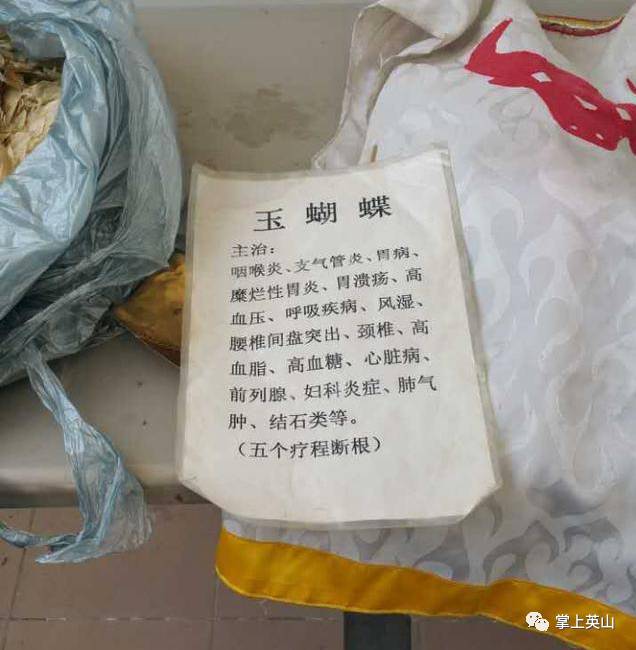 玉蝴蝶
主治：
咽喉炎、支气管炎、胃病、
糜烂性胃炎、胃溃疡、高
血压、呼吸疾病、风湿、
腰椎间盘突出、颈椎、高
血脂、高血糖、心脏病、
前列腺、妇科炎症、肺气
肿、结石类等。
（五个疗程断根）
掌上英山